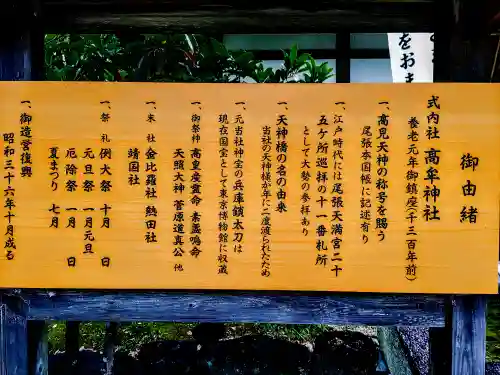 御由緒
式内社 高牟神社
養老元年御鎮座(千三百年前)
一、高見天神の称号を賜う
尾張本国帳に記述有り
一、江戸時代には尾張天満宮二十
五ケ所巡拝の十一番札所
として大勢の参拝あり
一、天神橋の名の由来
当社の天神様が年に二度渡られたため
一、元当社神宝の兵庫鎖太刀は
現在国宝として東京博物館に収蔵
一、御祭神 高皇産霊命 素盞鳴命
天照大神 菅原道真公 他
一、末社 金比羅社 熱田社
靖国社
一、祭礼 例大祭 十月 日
元旦祭 一月元旦
厄除祭 一月 日
夏まつり 七月
一、御造営復興
昭和三十六年十月成る
をおま